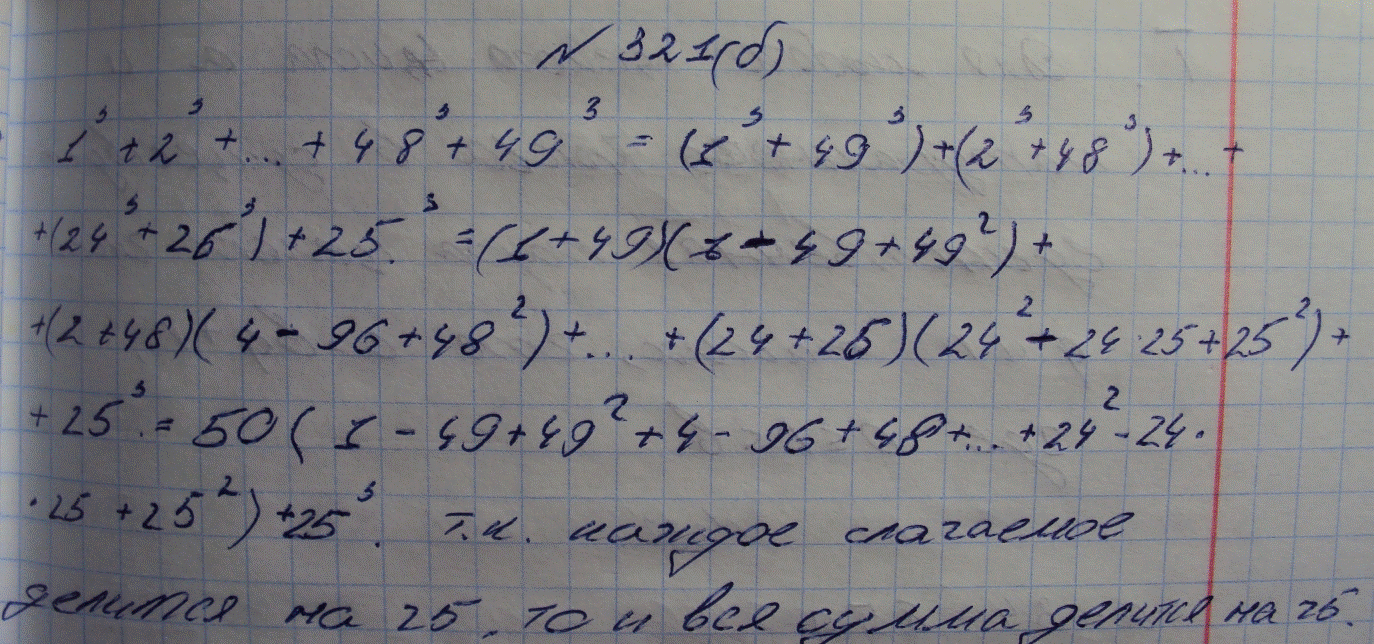 № 321(б)
1³ + 2³ + ... + 48³ + 49³ = (1³ + 49³) + (2³ + 48³) + ... +
+ (24³ + 26³) + 25³. = (1 + 49)(1 - 49 + 49²) +
+ (2 + 48)(4 - 96 + 48²) + ... + (24 + 26)(24² - 24 · 25 + 25²) +
+ 25³. = 50(1 - 49 + 49² + 4 - 96 + 48 + ... + 24² - 24 ·
· 25 + 25²) + 25³. т.к. каждое слагаемое
делится на 25, то и вся сумма делится на 25.